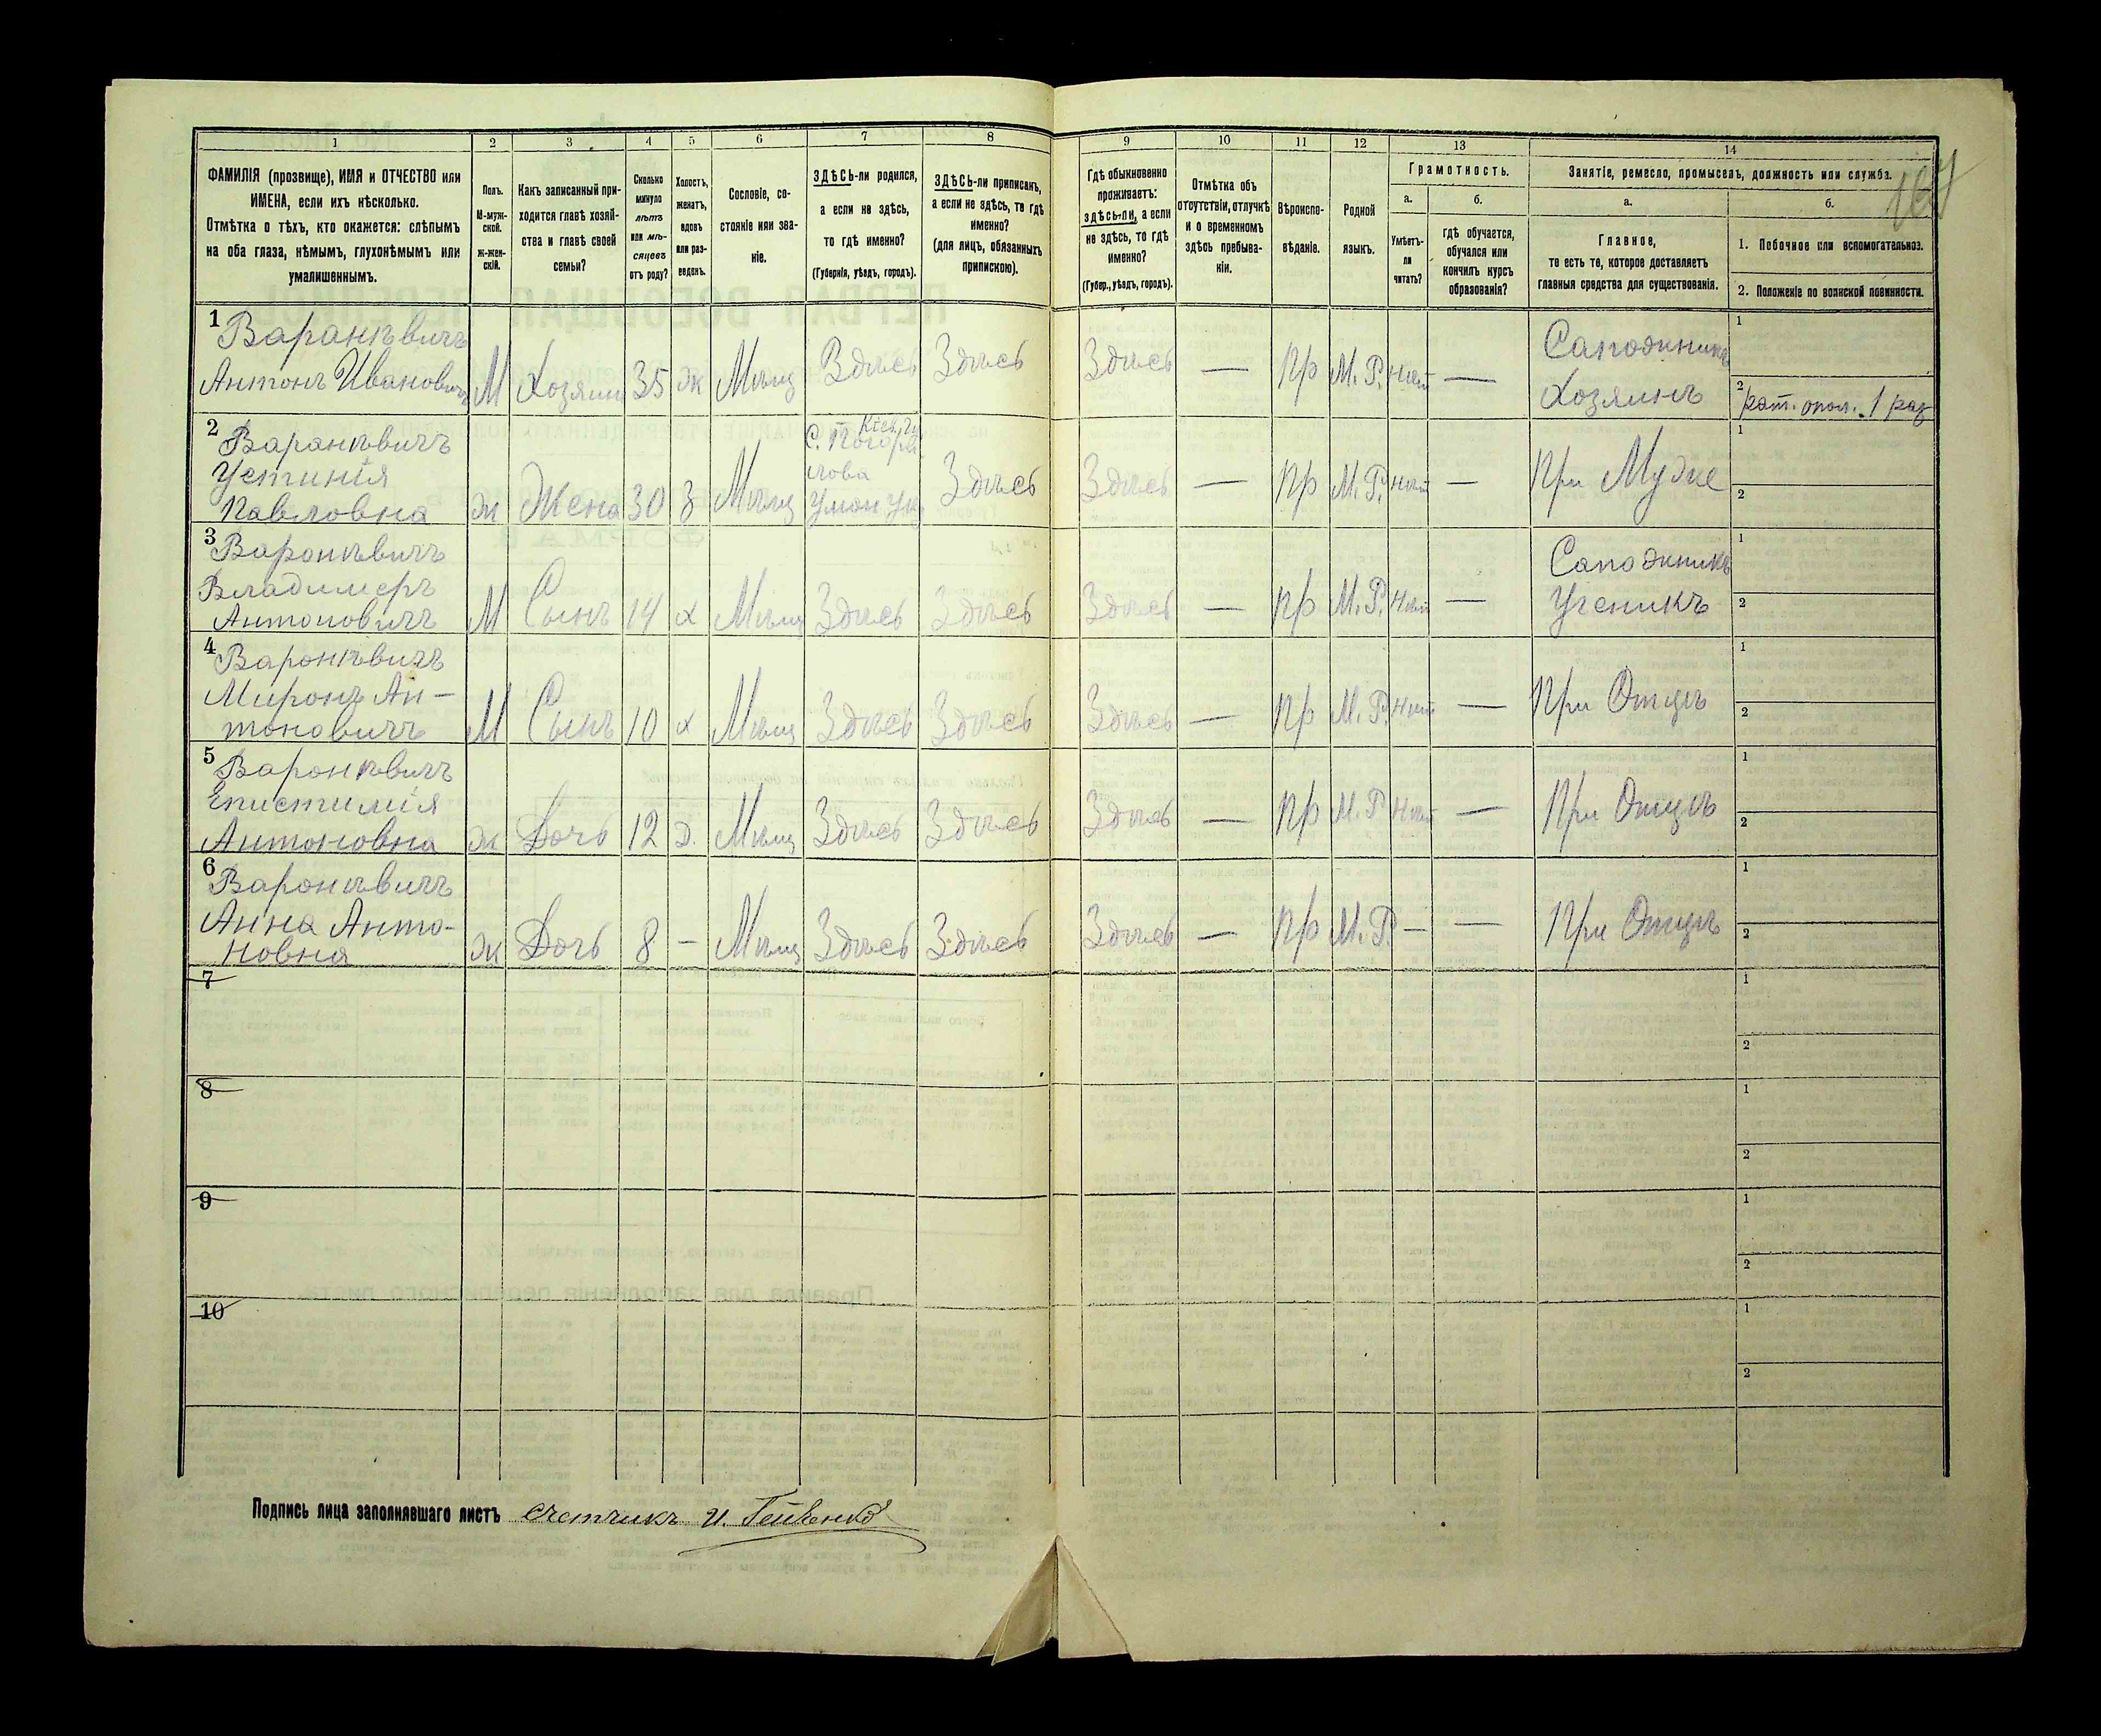 1 2 3 4 5 6 7 8 9 10 11 12 13 14
ФАМИЛІЯ (прозвище), ИМЯ и ОТЧЕСТВО или
ИМЕНА, если ихъ нѣсколько.
Отмѣтка о тѣхъ, кто окажется: слѣпымъ
на оба глаза, нѣмымъ, глухонѣмымъ или
умалишеннымъ.
Полъ.
М-муж-
ской.
ж-жен-
скій.
Какъ записанный при-
ходится главѣ хозяй-
ства и главѣ своей
семьи?
Сколько
минуло
лѣтъ
или мѣ-
сяцевъ
отъ роду?
Холостъ,
женатъ,
вдовъ
или раз-
веденъ.
Сословіе, со-
стояніе или зва-
ніе.
ЗДѢСЬ-ли родился,
а если не здѣсь,
то гдѣ именно?
(Губернія, уѣздъ, городъ).
ЗДѢСЬ-ли приписанъ,
а если не здѣсь, то гдѣ
именно?
(для лицъ, обязанныхъ
припискою).
Гдѣ обыкновенно
проживаетъ:
здѣсь-ли, а если
не здѣсь, то гдѣ
именно?
(Губер., уѣздъ, городъ).
Отмѣтка объ
отсутствіи, отлучкѣ
и о временномъ
здѣсь пребыва-
ніи.
Вѣроиспо-
вѣданіе.
Родной
языкъ.
Грамотность.
а.
Умѣетъ-
ли
читать?
б.
гдѣ обучается,
обучался или
кончилъ курсъ
образованія?
Занятіе, ремесло, промыселъ, должность или служба.
а.
Главное,
то есть то, которое доставляетъ
главныя средства для существованія.
б.
1. Побочное или вспомогательное.
2. Положеніе по воинской повинности.
1 Варанѣвичъ
Антонъ Ивановичъ М Хозяинъ 35 ж Мѣщ Здѣсь Здѣсь Здѣсь — Пр М.Р. Нѣт — Сапожникъ
Хозяинъ
1
2 рат. опол. 1 раз
2 Варанѣвичъ
Устинія
Павловна ж Жена 30 З Мѣщ С. Погорѣ
лова
Здѣсь Здѣсь — Пр М.Р. Нѣт — При Мужѣ
1
2
3 Варонѣвичъ
Владимеръ
Антоновичъ М Сынъ 14 х Мѣщ Здѣсь Здѣсь Здѣсь — Пр М.Р. Нѣт — Сапожникъ
Ученикъ
1
2
4 Варонѣвичъ
Миронъ Ан-
тоновичъ М Сынъ 10 х Мѣщ Здѣсь Здѣсь Здѣсь — Пр М.Р. Нѣт — При Отцѣ
1
2
5 Варонѣвичъ
Епистимія
Антоновна ж Дочь 12 Д. Мѣщ Здѣсь Здѣсь Здѣсь — Пр М.Р. Нѣт — При Отцѣ
1
2
6 Варонѣвичъ
Анна Анто-
новна ж Дочь 8 — Мѣщ Здѣсь Здѣсь Здѣсь — Пр М.Р. — — При Отцѣ
1
2
7
1
2
8
1
2
9
1
2
10
1
2
Подпись лица заполнявшаго листъ счетчикъ И.